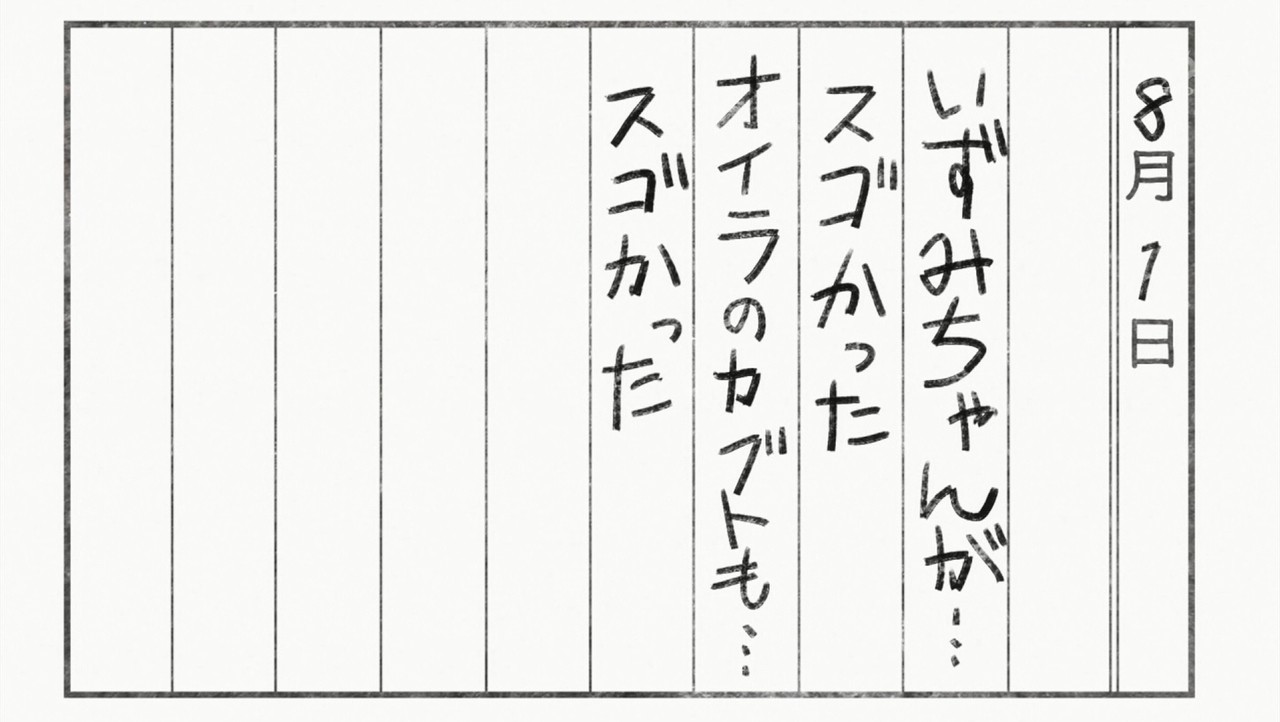 8月1日
いずみちゃんが…
スゴかった
オイラのカブトも…
スゴかった